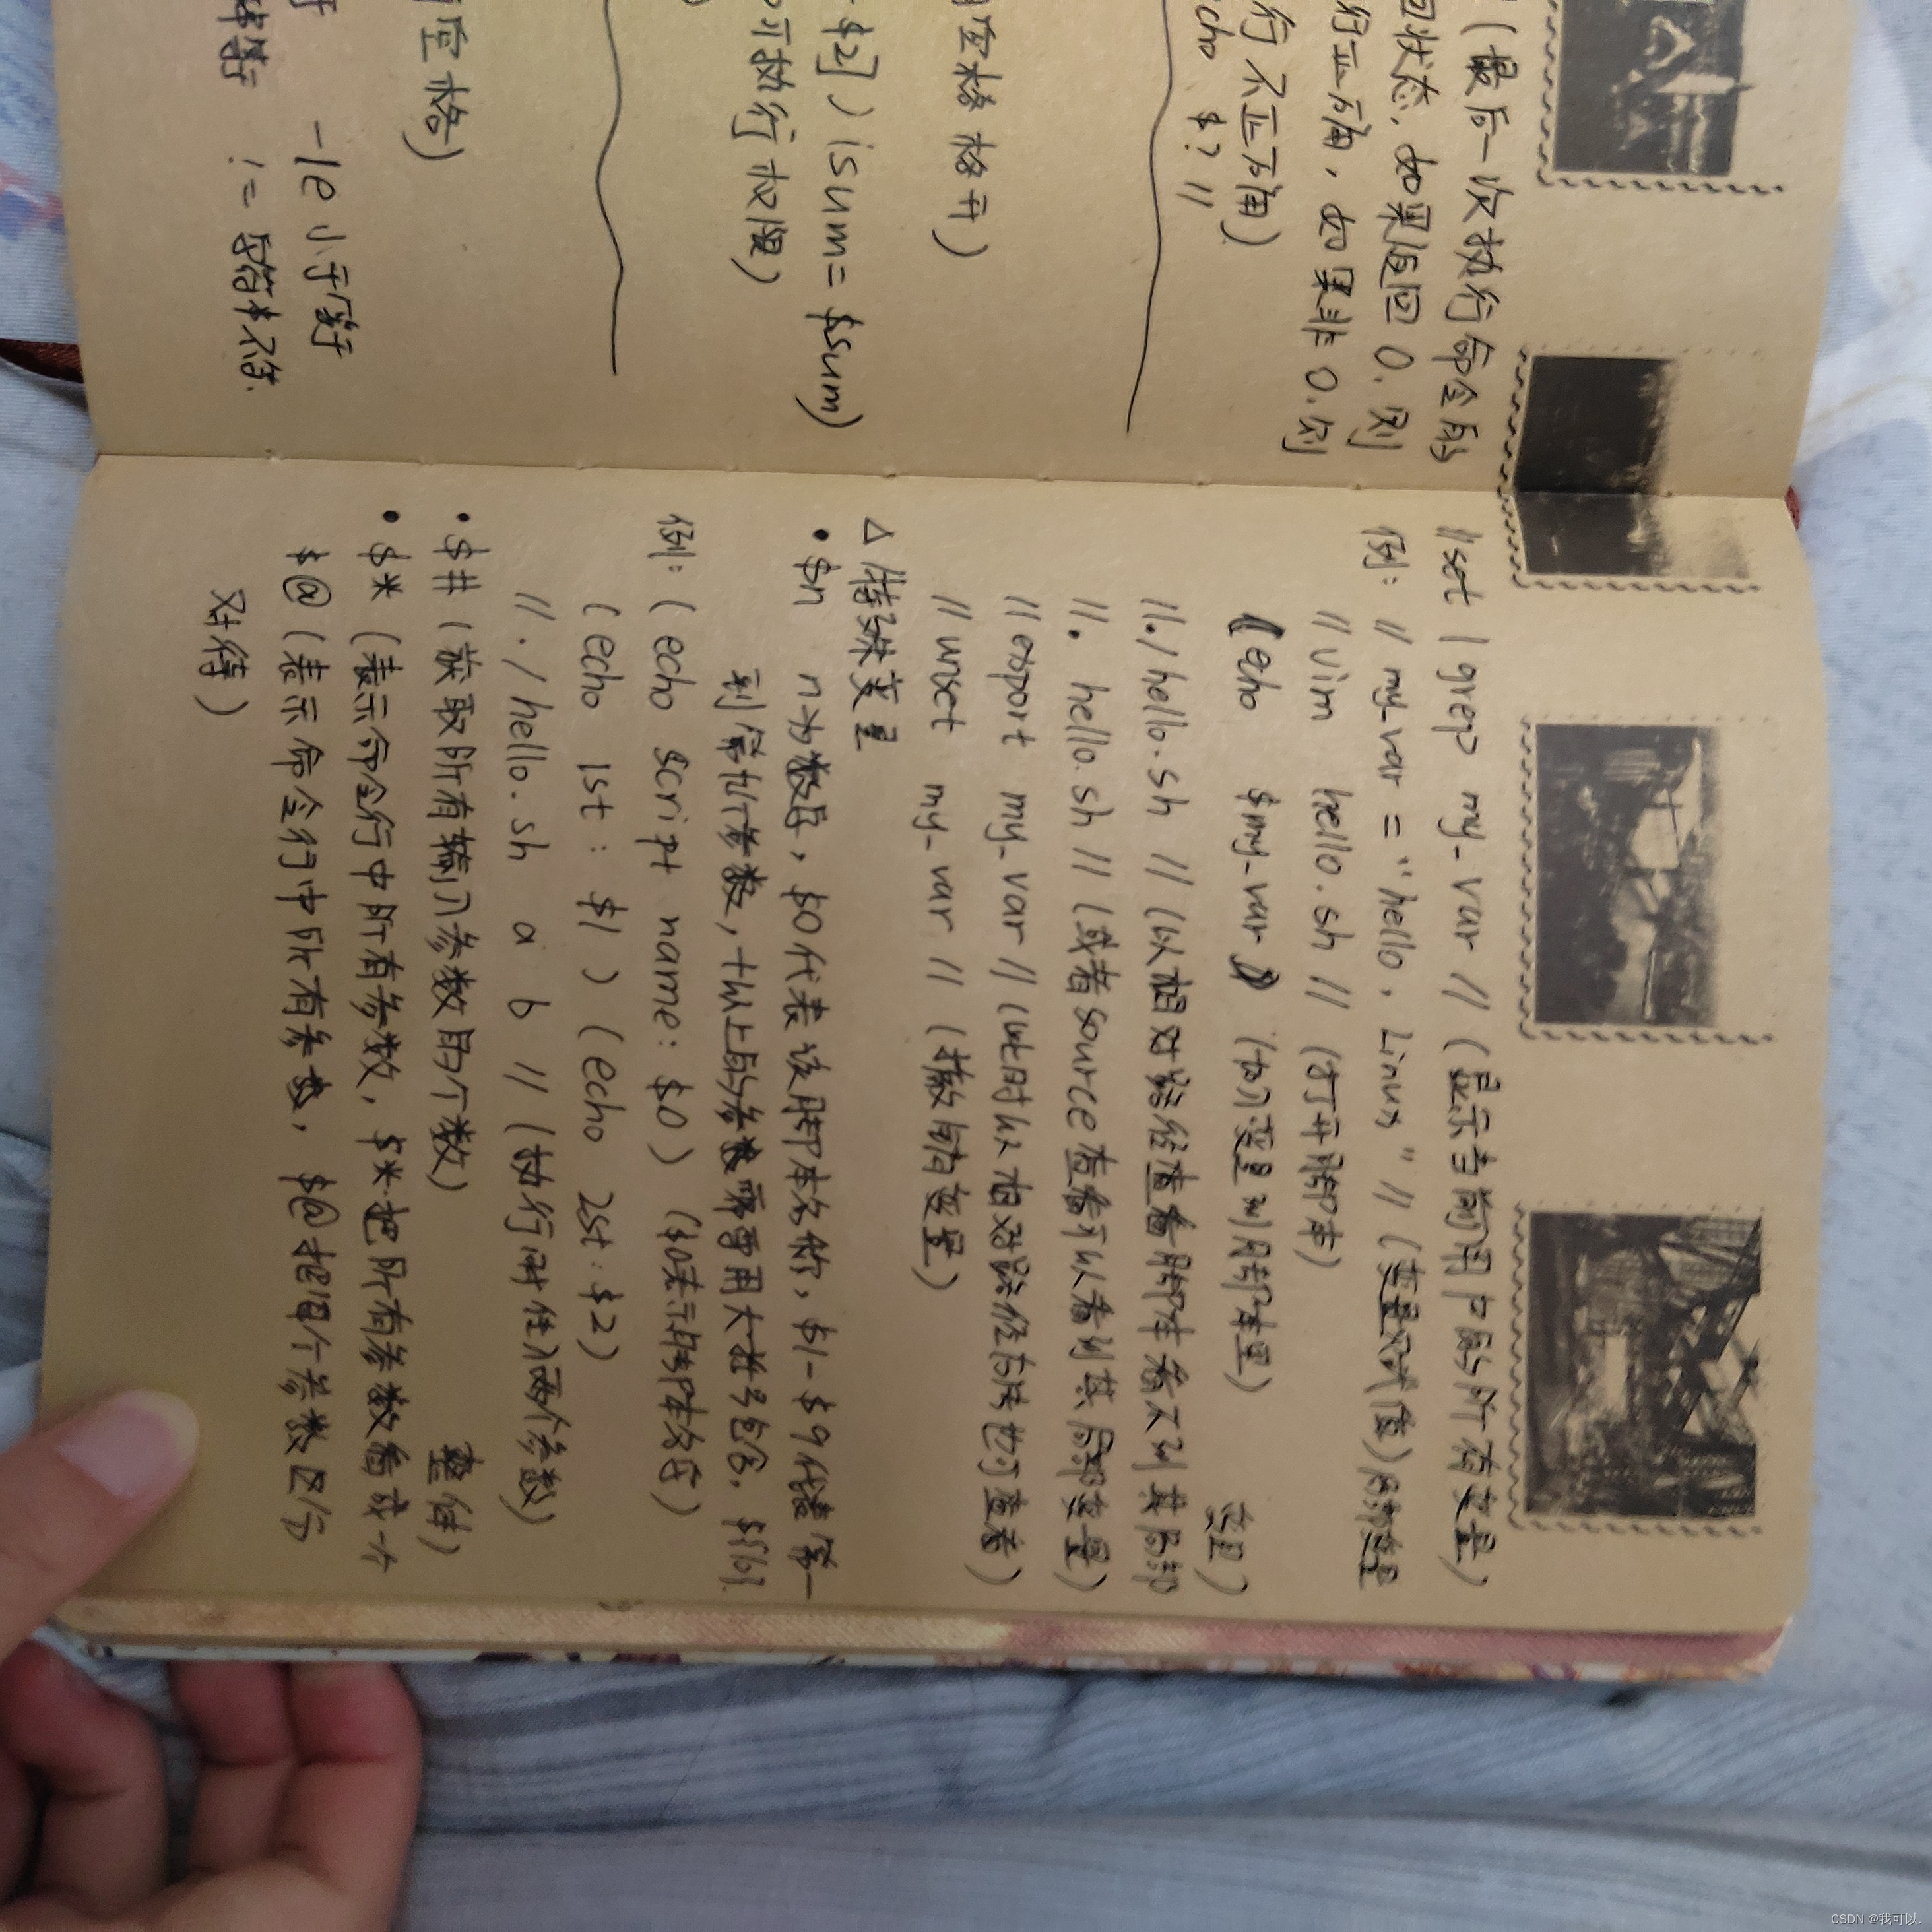 (最后一次执行命令的
回状态,如果返回0.则
行正确,如果非0.则
行不正确)
cho $? //
空格 格开)
$2] ) (sum= $sum)
可执行权限)
空格)
-le 小于等于
!= 字符串不等.
// set | grep my_var // (显示当前用户的所有变量)
例: // my_var = "hello, Linux" // (变量赋值)局部变量
// vim hello.sh // (打开脚本)
(echo $my_var) (加入变量到脚本里)
//./hello.sh // (以相对路径查看脚本看不到其局部
变量)
//. hello.sh // (或者source查看可以看到其局部变量)
// export my_var // (此时以相对路径方法也可查看)
// unset my_var // (撤销变量)
△特殊变量
• $n n为数字, $0代表该脚本名称, $1-$9代表第一
到第九个参数,十以上的参数需要用大括号包含.
例: (echo script name: $0) ($0表示脚本名字)
(echo 1st: $1) (echo 2st: $2)
//./hello.sh a b // (执行时传入两个参数)
• $# (获取所有输入参数的个数)
• $* (表示命令行中所有参数, $*把所有参数看成一个
整体)
$@ (表示命令行中所有参数, $@把每个参数区分
对待)
CSDN @我可以.